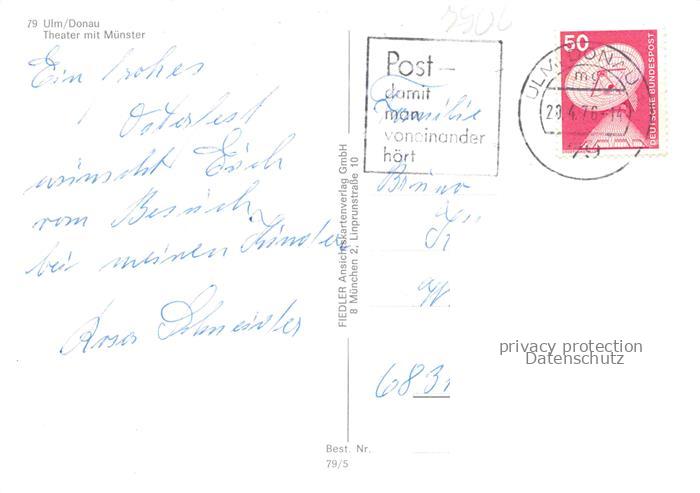 79 Ulm/Donau
Theater mit Münster
Ein frohes
Osterfest
wünscht Euch
vom Besuch
bei meinen Kinder
Rosa
FIEDLER Ansichtskartenverlag GmbH
8 München 2, Linprunstraße 10
Best. Nr.
79/5
Post-
damit
man
voneinander
hört
ULM, DONAU
mg
79
50
DEUTSCHE BUNDESPOST
Familie
Bruno
privacy protection
Datenschutz